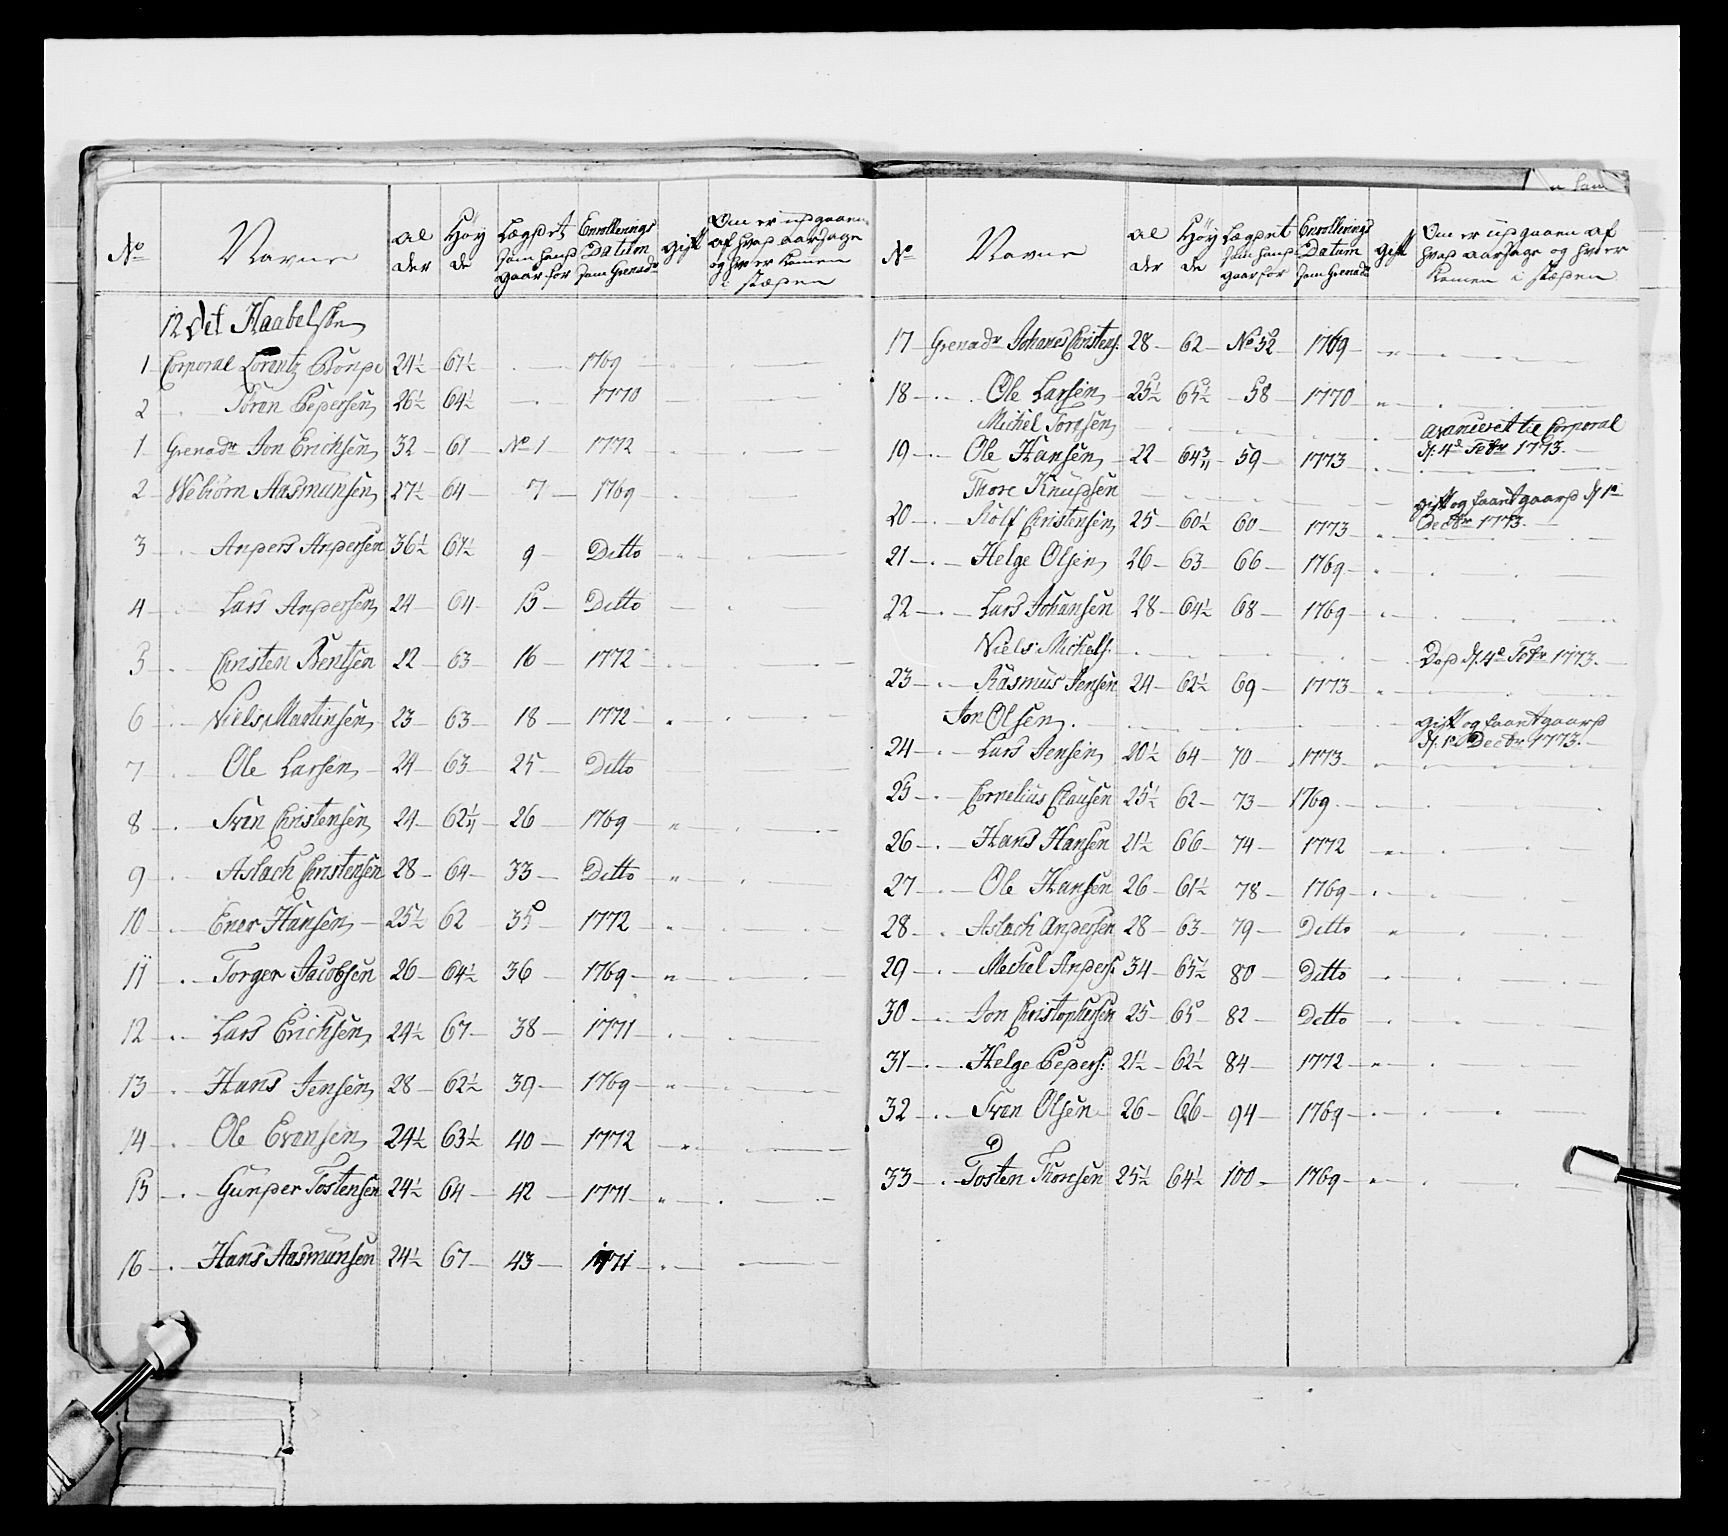 No Navne al der Høy de Lægdet Som hand gaar for Enrollerings Datum Som Grenadr gift Om er udgaaen af hvad aarsage og hvo er Kommen i stæden
12det Haabelske
1 Corporal Lorentz 24½ 67½ 1769
2 Søren Pedersen 26½ 64½ 1770
1 Grenadr Jon Erichsen 32 61 No 1 1772
2 Webiørn Aasmunsen 27½ 64 7 1769
3 Anders Andersen 36½ 61½ 9 Ditto
4 Lars Andersen 24 64 15 Ditto
5 Christen Bentsen 22 63 16 1772
6 Niels Martinsen 23 63 18 1772
7 Ole Larsen 24 63 25 Ditto
8 Sven Christensen 24 62½ 26 1769
9 Aslach Christensen 28 64 33 Ditto
10 Ener Hansen 25½ 62 35 1772
11 Torger Jacobsen 26 64½ 36 1769
12 Lars Erichsen 24½ 67 38 1771
13 Hans Jensen 28 62½ 39 1769
14 Ole Evensen 24½ 63½ 40 1772
15 Gunder Tostensen 24½ 64 42 1771
16 Hans Aasmunsen 24½ 67 43 1771
No Navne al der Høy de Lægdet Som hand gaar for Enrollerings Datum Som Grenadr gift Om er udgaaen af hvad aarsage og hvo er Kommen i stæden
17 Grenadr Johanes Christens: 28 62 No 52 1769
18 Ole Larsen 25½ 65½ 58 1770
Michel Torgsen avancerit til Corporal
19 Ole Hansen 22 64¾ 59 1773 d: 4de Febr 1773.
Thore Knudsen gift og faaet gaard d 1e
20 Rolf Christensen 25 60½ 60 1773 Decbr 1773.
21 Helge Olsen 26 63 66 1769
22 Lars Johansen 28 64½ 68 1769
Niels Michels: Død d. 4de Febr 1773.
23 Rasmus Jensen 24 62½ 69 1773
Jon Olsen. gift og faaet gaard
24 Lars Jensen 20½ 64 70 1773 d. 1e Decbr 1773.
25 Cornelius Clausen 25½ 62 73 1769
26 Hans Hansen 21½ 66 74 1772
27 Ole Hansen 26 61½ 78 1769
28 Aslach Andersen 28 63 79 Ditto
29 Mechel Anders: 34 65½ 80 Ditto
30 Jon Christophersen 25 65 82 Ditto
31 Helge Peders: 21½ 62½ 84 1772
32 Sven Olsen 26 66 94 1769
33 Tosten Thorsen 25½ 64½ 100 1769